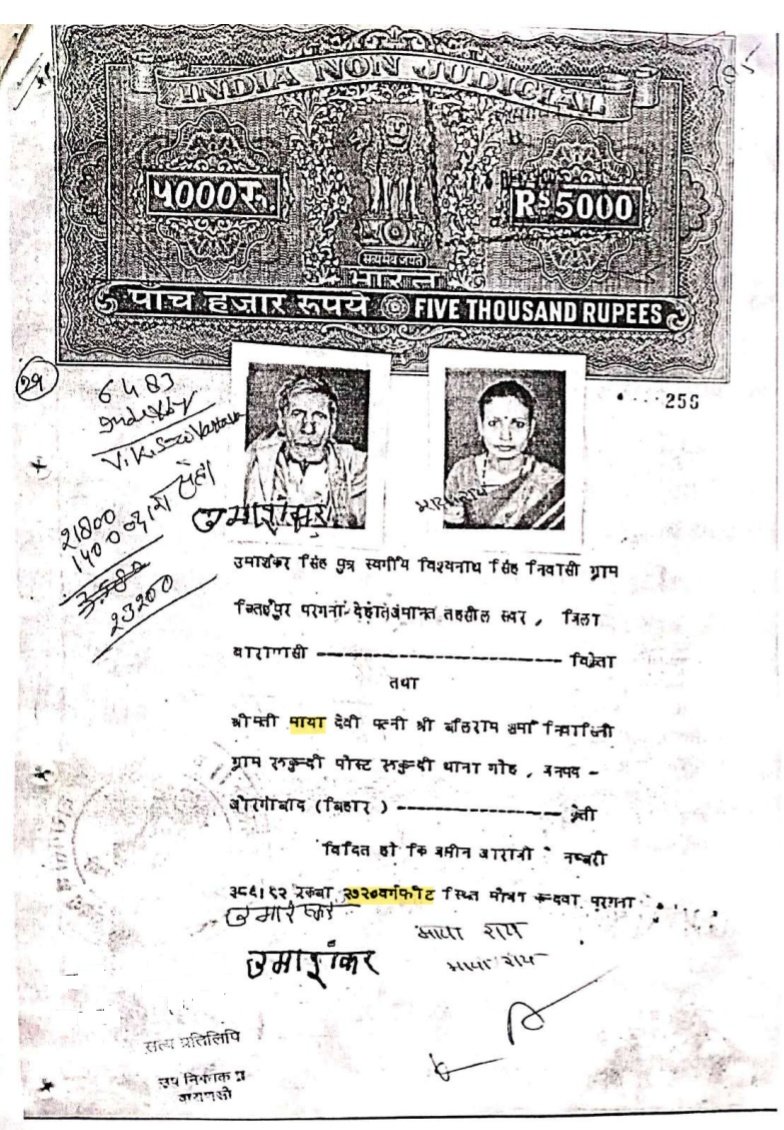 INDIA NON JUDICIAL
५000रु.
Rs 5000
सत्यमेव जयते
भारत
पाँच हजार रूपये FIVE THOUSAND RUPEES
29
6483
256
21800
1400
23200
उमाशंकर
उमाशंकर सिंह पुत्र स्वर्गीय विश्वनाथ सिंह निवासी ग्राम
परगना देहात अमानत तहसील सदर, जिला
वाराणसी ---------------------------- विक्रेता
तथा
श्रीमती माया देवी पत्नी श्री बलिराम शर्मा निवासिनी
ग्राम रुकुन्दी पोस्ट रुकुन्दी थाना गोह, जनपद -
औरंगाबाद (बिहार) ------------------- क्रेती
विदित हो कि जमीन आराजी नम्बरी
रकबा २७२०वर्गफीट स्थित मौजा कन्दवा परगना
उमाशंकर
माया राय
उमाशंकर
माया राय
सत्य प्रतिलिपि
उप निबन्धक
वाराणसी